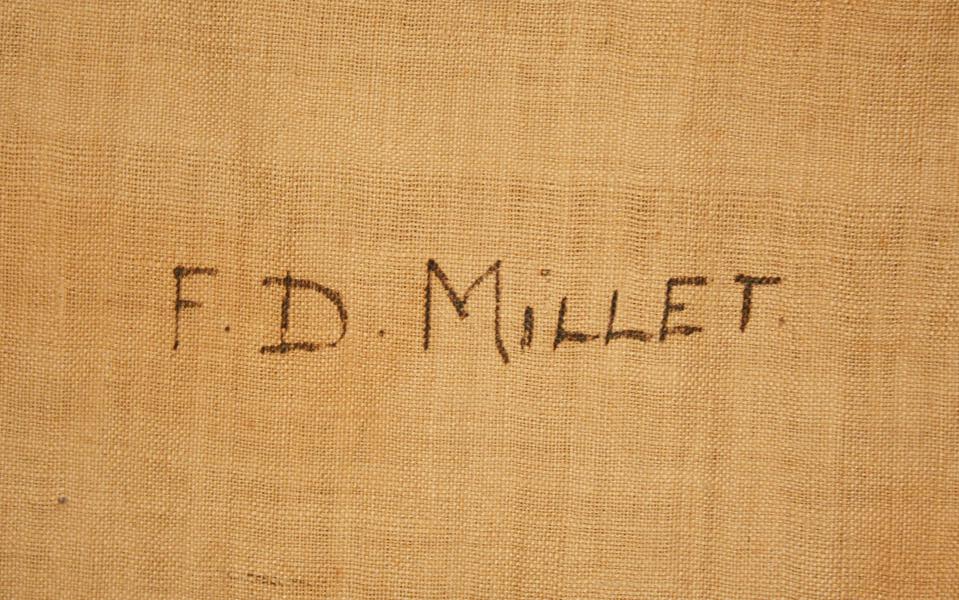 F. D. MiLLET.